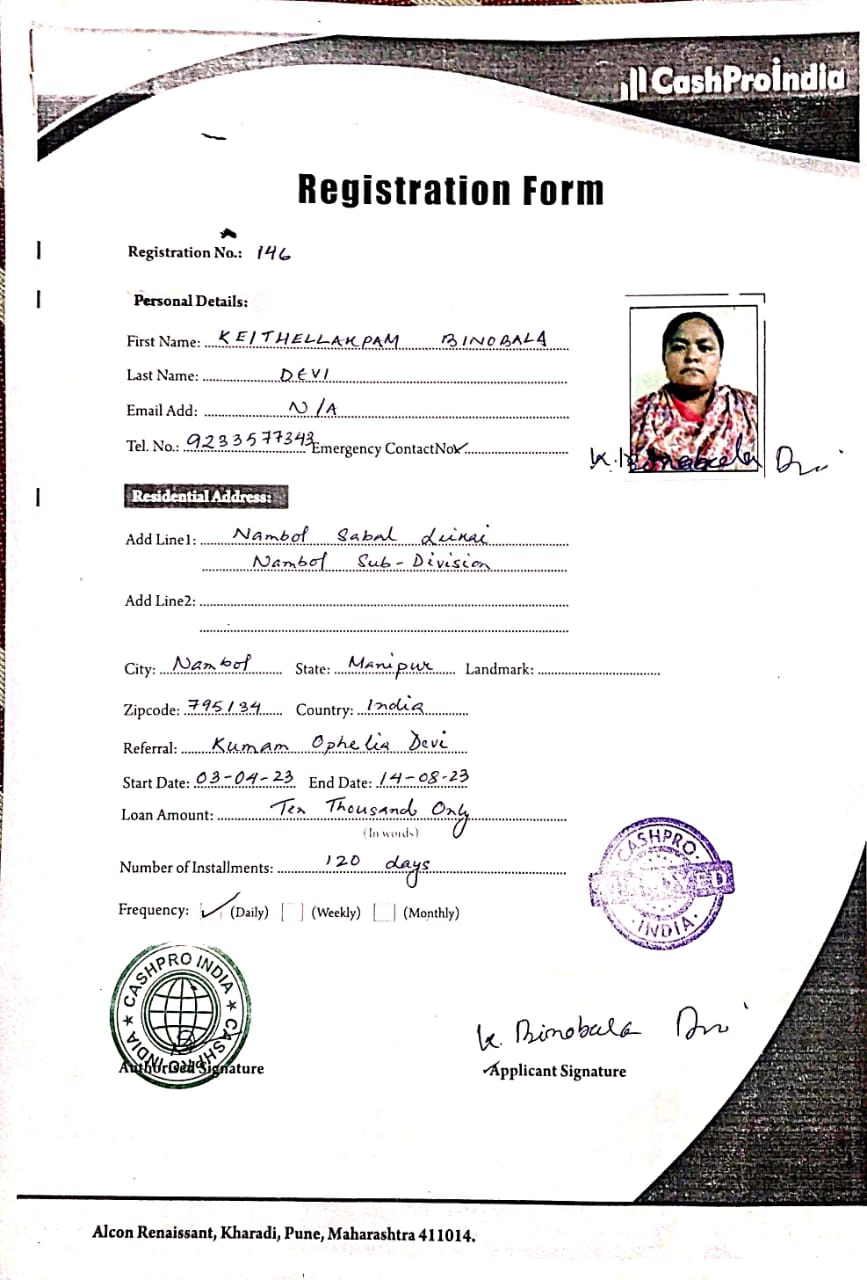 CashProIndia
Registration Form
Registration No.: 146
Personal Details:
First Name: KEITHELLAKPAM BINOBALA
Last Name: DEVI
Email Add: N/A
Tel. No.: 9233577343 Emergency ContactNo
K. Binobala Devi
Residential Address:
Add Line1: Nambol Sabal Leikai
Nambol Sub-Division
Add Line2:
City: Nambol State: Manipur Landmark:
Zipcode: 795134 Country: India
Referral: Kumam Ophelia Devi
Start Date: 03-04-23 End Date: 14-08-23
Loan Amount: Ten Thousand Only
(In words)
Number of Installments: 120 days
Frequency: (Daily) (Weekly) (Monthly)
CASHPRO
INDIA
CASHPRO INDIA ★ CASHPRO INDIA ★
K. Binobala Devi
Authorised Signature
Applicant Signature
Alcon Renaissant, Kharadi, Pune, Maharashtra 411014.